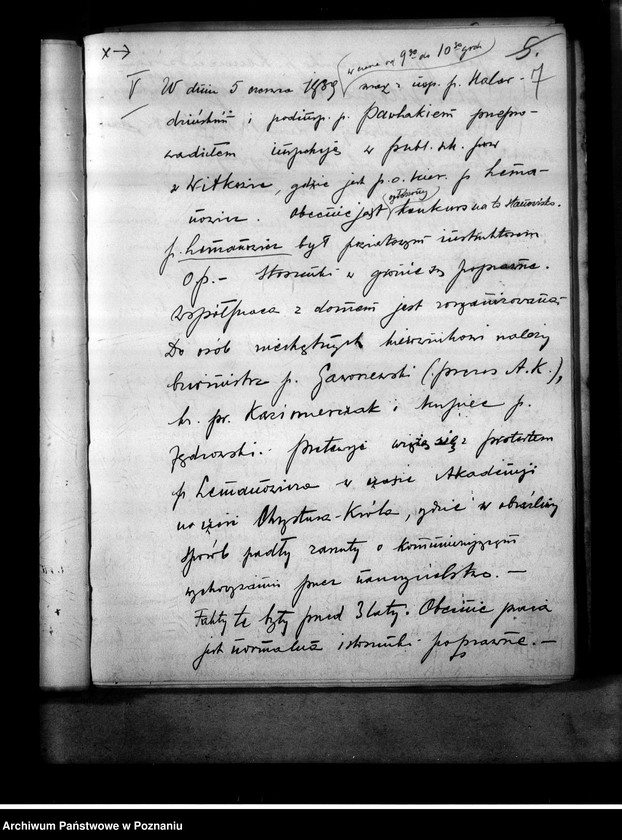 x→
5.
7
w czasie od 9³⁰ do 10³⁰ godz
V W dniu 5 czerwca 1939 wraz z insp. p. Halar-
dzińskim i podinsp. p. Pawlakiem przepro-
wadziłem inspekcję w publ. szk. pow
w Witkowie, gdzie jest p. o. kier. p. Lema-
nowicz. Obecnie jest ogłoszony konkurs na to stanowisko.
p. Lemanowicz był poniatowym instruktorem
O.p.- Stosunki w gronie są poprawne.
Współpraca z domem jest zorganizowana.
Do osób niechętnych kierownikowi należy
burmistrz p. Gaworzewski (prezes A.K.),
ks. pr. Kazimierczak i kupiec p.
Jędrowski. Pretensje wiążą się z protestem
p. Lemanowicza w czasie Akademii
na cześć Chrystusa-Króla, gdzie w obraźliwy
sposób padły zarzuty o komunizującym
wychowaniu przez nauczycielstwo. —
Fakty te były przed 3 laty. Obecnie praca
jest normalna i stosunki poprawne. —
Archiwum Państwowe w Poznaniu